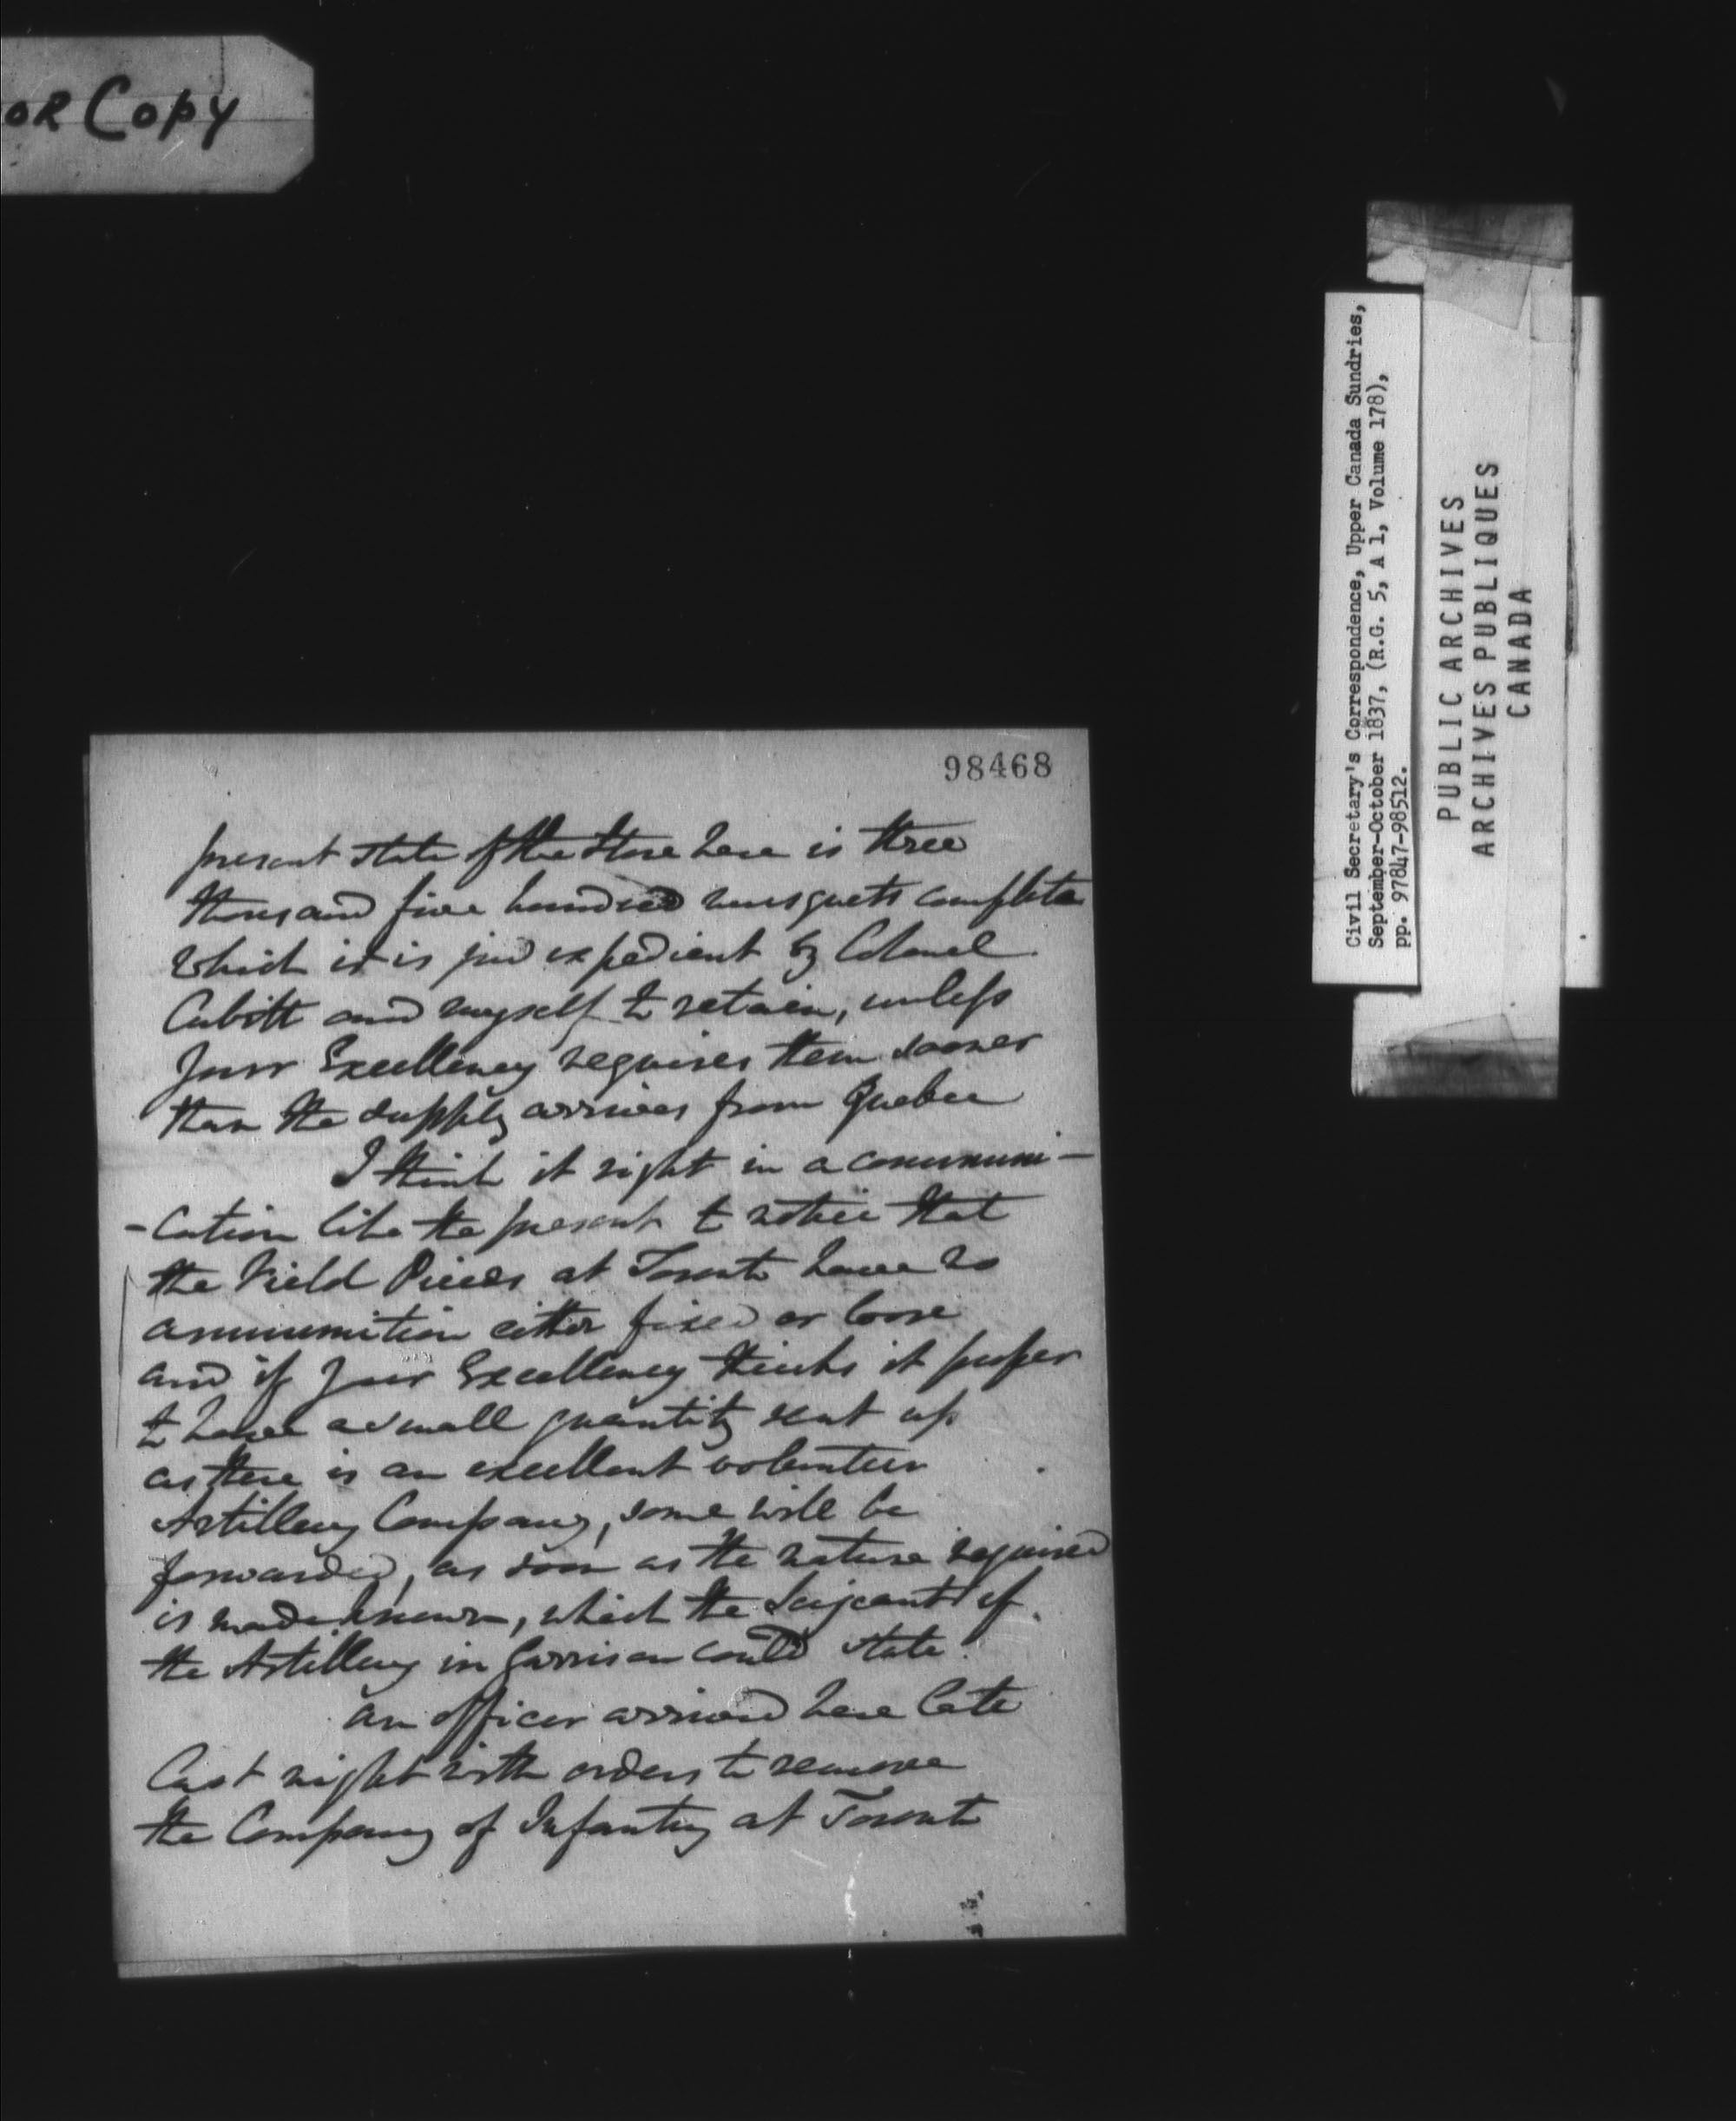 OR Copy
98468
present state of the Store here is three
thousand five hundred musquets complete
which it is
expedient by Colonel
Cubitt and myself to retain, unless
Your Excellency requires them sooner
than the supply arrives from Quebec
I think it right in a communi-
-cation like the present to notice that
the Field Pieces at Toronto have no
ammunition either fixed or loose
and if Your Excellency thinks it proper
to have a small quantity sent up
as there is an excellent volunteer
Artillery Company, some will be
forwarded, as soon as the nature required
is made known, which the Serjeant of
the Artillery in Garrison could state.
An officer arrived here late
last night with orders to remove
the Company of Infantry at Toronto
Civil Secretary's Correspondence, Upper Canada Sundries,
September-October 1837, (R.G. 5, A 1, Volume 178),
pp. 97847-98512.
PUBLIC ARCHIVES
ARCHIVES PUBLIQUES
CANADA